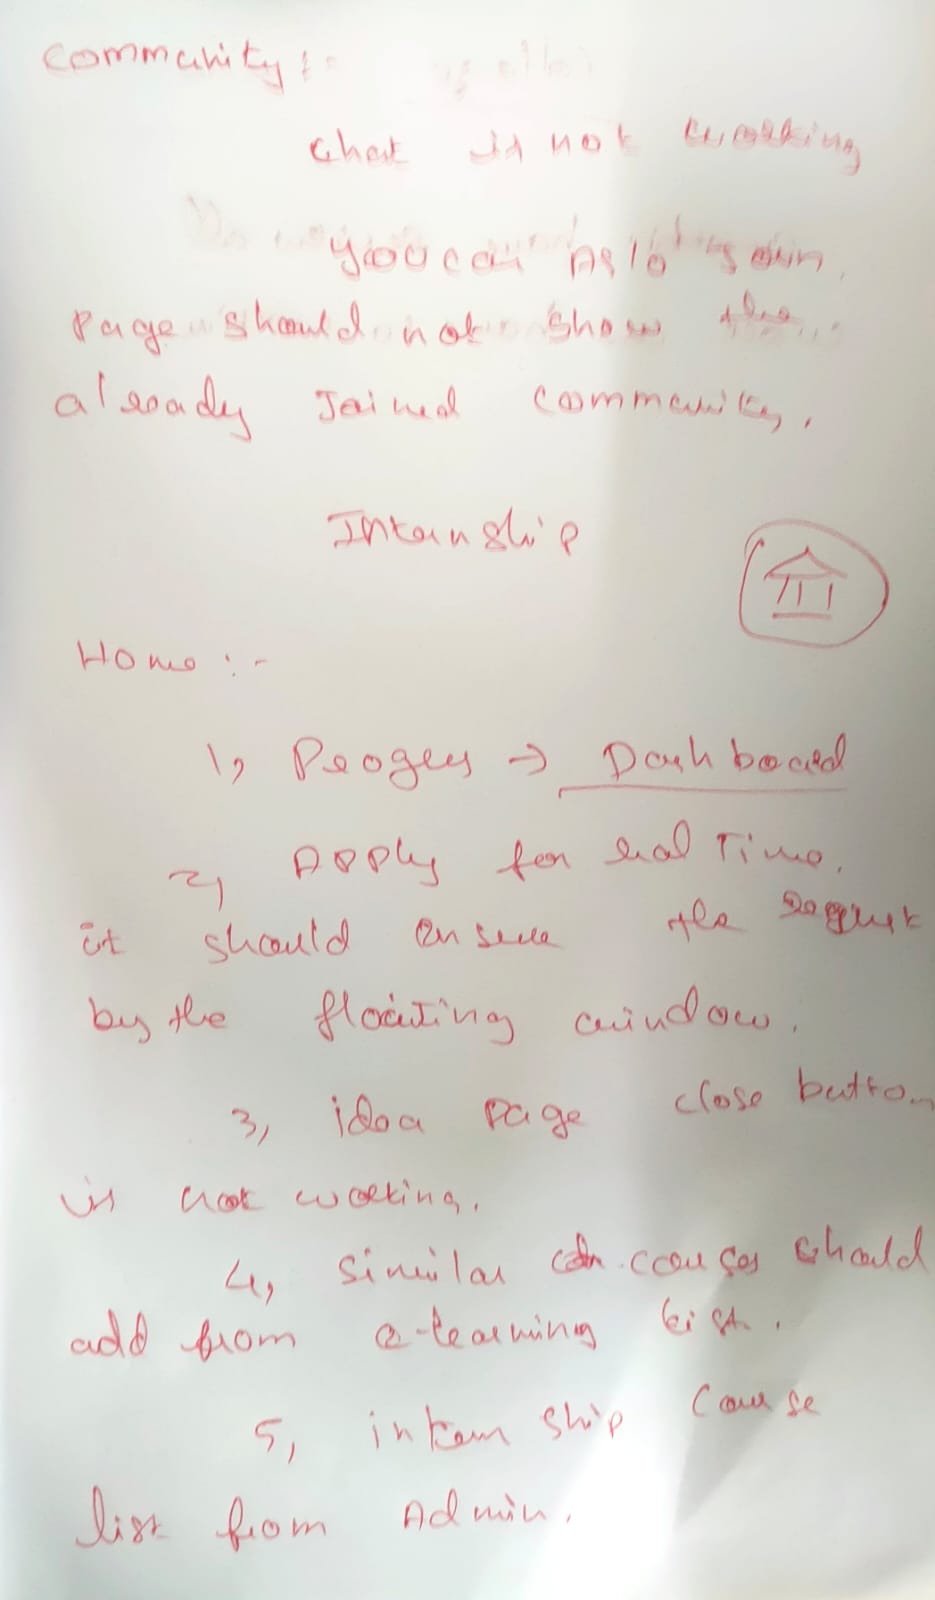 Community :-
Chat is not working
you can also join
Page should not show the
already Joined Community.
Internship
Home :-
1, Progress → Dashboard
2, Apply for real Time.
it should ensure the request
by the floating window.
3, idea page close button
is not working.
4, similar courses should
add from e-learning list.
5, internship Course
list from Admin.